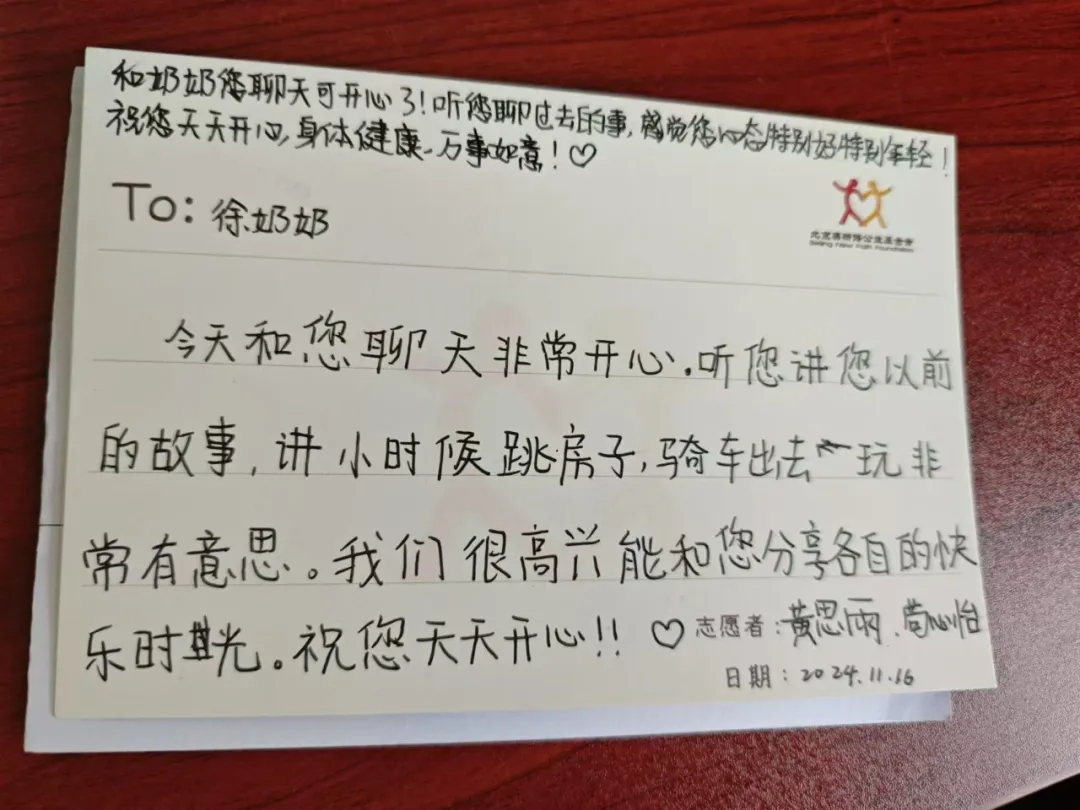 和奶奶您聊天可开心了!听您聊过去的事,感觉您心态特别好特别年轻!
祝您天天开心,身体健康、万事如意!♡
To: 徐奶奶
北京新阳光公益基金会
今天和您聊天非常开心.听您讲您以前
的故事,讲小时候跳房子,骑车出去玩非
常有意思。我们很高兴能和您分享各自的快
乐时光。祝您天天开心!! ♡
志愿者:黄思雨、苟心怡
日期:2024.11.16